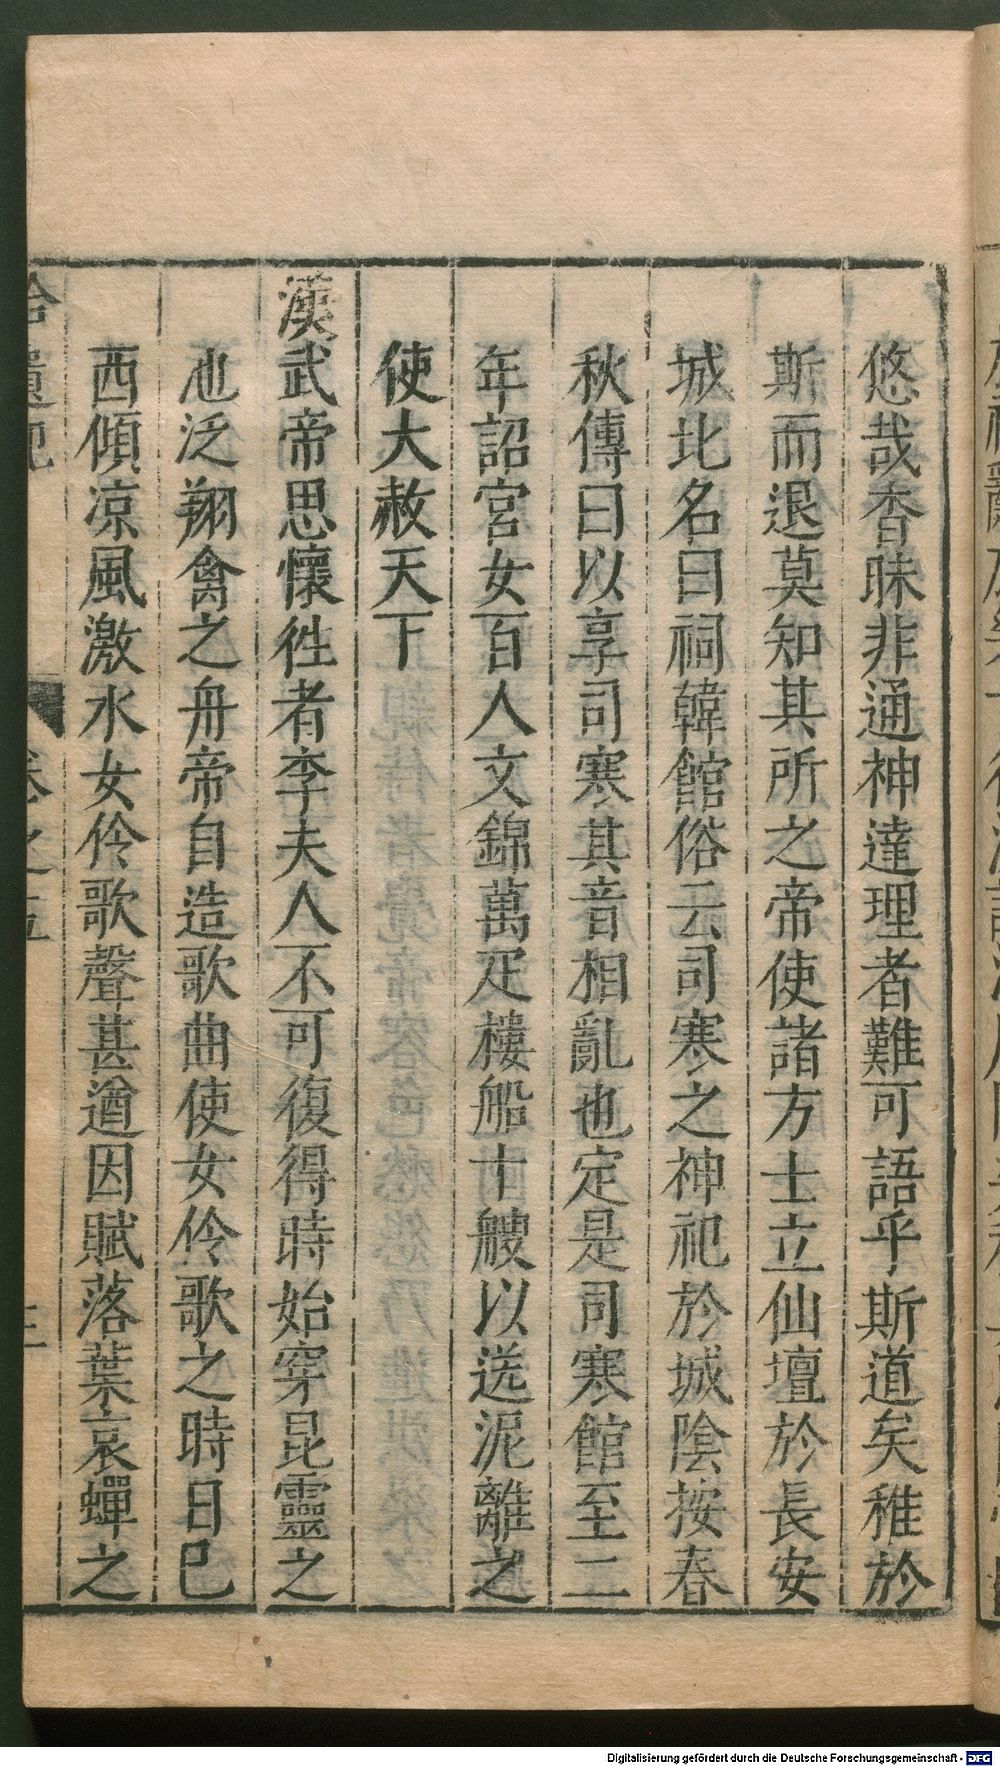 悠哉杳昧非通神達理者難可語乎斯道矣稚於
斯而退莫知其所之帝使諸方士立仙壇於長安
城北名曰祠韓館俗云司寒之神祀於城陰按春
秋傳曰以享司寒其音相亂也定是司寒館至二
年詔宮女百人文錦萬疋樓船十艘以送泥離之
使大赦天下
漢武帝思懷徃者李夫人不可復得時始穿昆靈之
池泛翔禽之舟帝自造歌曲使女伶歌之時日已
西傾凉風激水女伶歌聲甚遒因賦落葉哀蟬之
卷之五
Digitalisierung gefördert durch die Deutsche Forschungsgemeinschaft - DFG